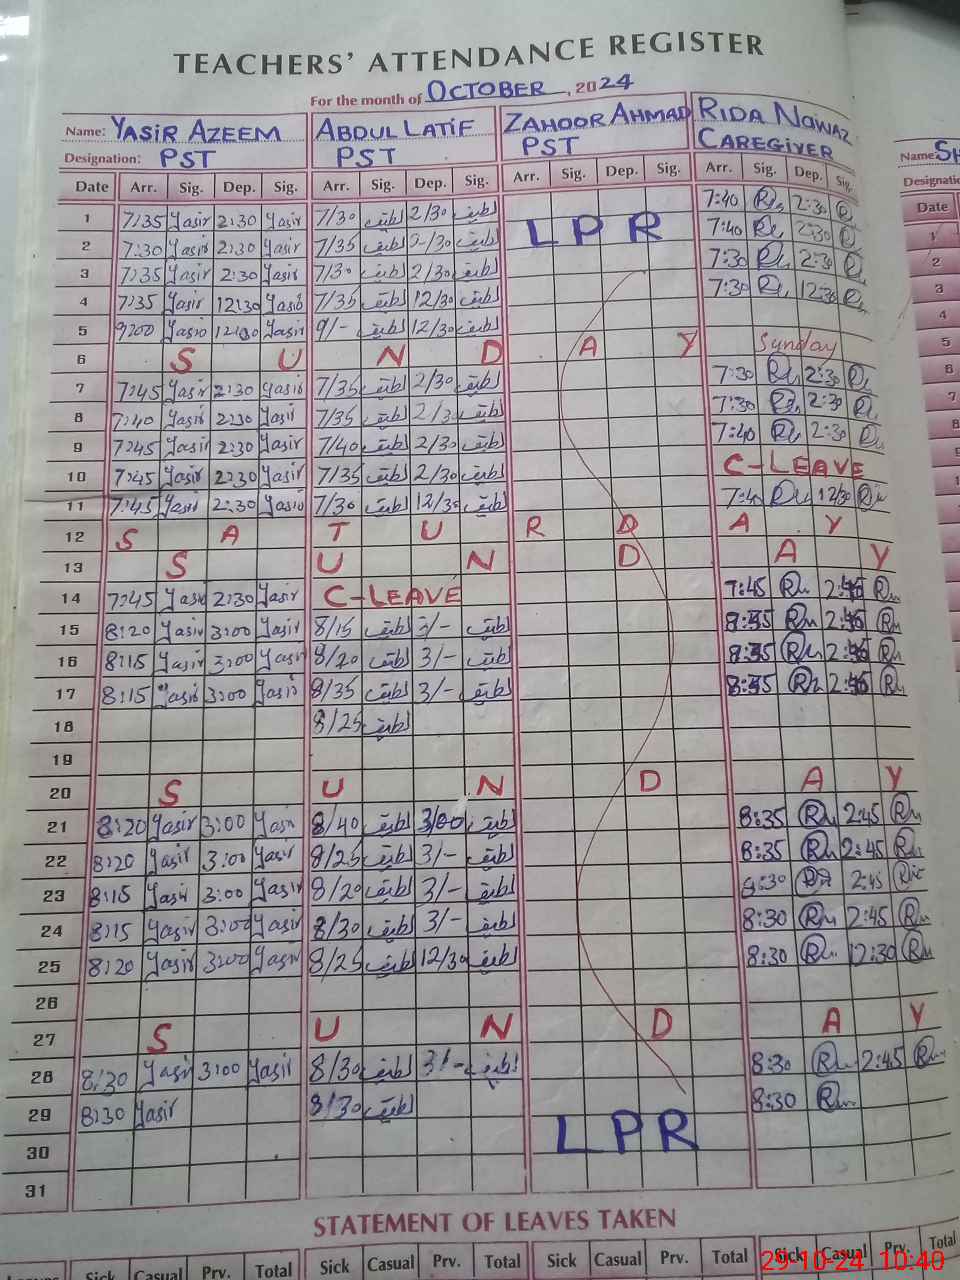 TEACHERS' ATTENDANCE REGISTER
For the month of OCTOBER, 2024
Name: YASIR AZEEM ABDUL LATIF ZAHOOR AHMAD RIDA NAWAZ
Designation: PST PST PST CAREGIVER
Name: SH
Date Arr. Sig. Dep. Sig. Arr. Sig. Dep. Sig. Arr. Sig. Dep. Sig. Arr. Sig. Dep. Sig.
Date
1 7:35 Yasir 2:30 Yasir 7/30 لطیف 2/30 لطیف LPR 7:40 2:30
2 7:30 Yasir 2:30 Yasir 7/35 لطیف 2/30 لطیف 7:40 2:30
3 7:35 Yasir 2:30 Yasir 7/30 لطیف 2/30 لطیف 7:30 2:30
4 7:35 Yasir 12:30 Yasir 7/35 لطیف 12/30 لطیف 7:30 12:30
5 9:00 Yasir 12:30 Yasir 9/- لطیف 12/30 لطیف
6 S U N D A Y Sunday
7 7:45 Yasir 2:30 Yasir 7/35 لطیف 2/30 لطیف 7:30 2:30
8 7:40 Yasir 2:30 Yasir 7/35 لطیف 2/30 لطیف 7:30 2:30
9 7:45 Yasir 2:30 Yasir 7/40 لطیف 2/30 لطیف 7:40 2:30
10 7:45 Yasir 2:30 Yasir 7/35 لطیف 2/30 لطیف C-LEAVE
11 7:45 Yasir 2:30 Yasir 7/30 لطیف 12/30 لطیف 7:40 12/30
12 S A T U R D A Y
13 S U N D A Y
14 7:45 Yasir 2:30 Yasir C-LEAVE 7:45
15 8:20 Yasir 3:00 Yasir 8/15 لطیف 3/- لطیف
16 8:15 Yasir 3:00 Yasir 8/20 لطیف 3/- لطیف
17 8:15 Yasir 3:00 Yasir 8/35 لطیف 3/- لطیف
18 8/25 لطیف
19
20 S U N D A Y
21 8:20 Yasir 3:00 Yasir 8/40 لطیف 3/00 لطیف 8:35 2:45
22 8:20 Yasir 3:00 Yasir 8/25 لطیف 3/- لطیف 8:35 2:45
23 8:15 Yasir 3:00 Yasir 8/20 لطیف 3/- لطیف 8:30 2:45
24 8:15 Yasir 3:00 Yasir 8/30 لطیف 3/- لطیف 8:30 2:45
25 8:20 Yasir 3:00 Yasir 8/25 لطیف 12/30 لطیف 8:30 12:30
26
27 S U N D A Y
28 8:30 Yasir 3:00 Yasir 8/30 لطیف 3/- لطیف 8:30 2:45
29 8:30 Yasir 8/30 لطیف 8:30
30 LPR
31
STATEMENT OF LEAVES TAKEN
Sick Casual Prv. Total Sick Casual Prv. Total Sick Casual Prv. Total Sick Casual Prv. Total
29-10-24 10:40